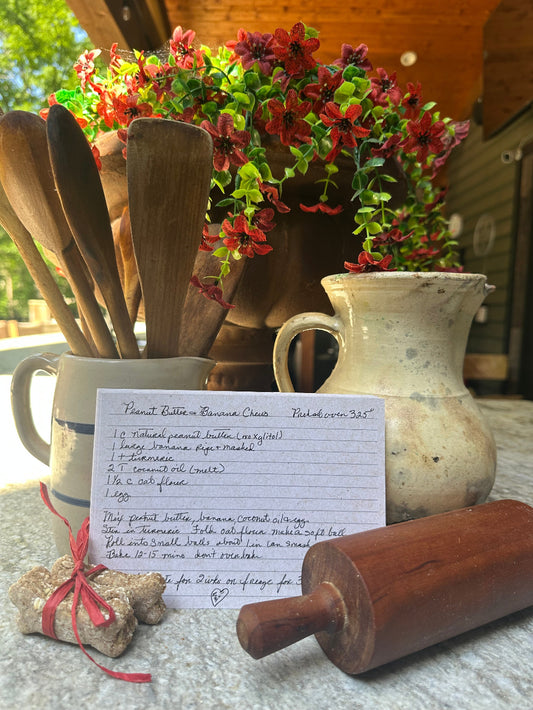 Peanut Butter & Banana Chews Preheat oven 325°
1 c natural peanut butter (no xylitol)
1 large banana ripe & mashed
1 t turmeric
2 T coconut oil (melt)
1 1/2 c oat flour
1 egg
Mix peanut butter, banana, coconut oil & egg
Stir in turmeric Fold oat flour make a soft ball
Roll into small balls about 1 in can smash
Bake 12-15 mins don't over bake
for 2 wks or freeze for 3